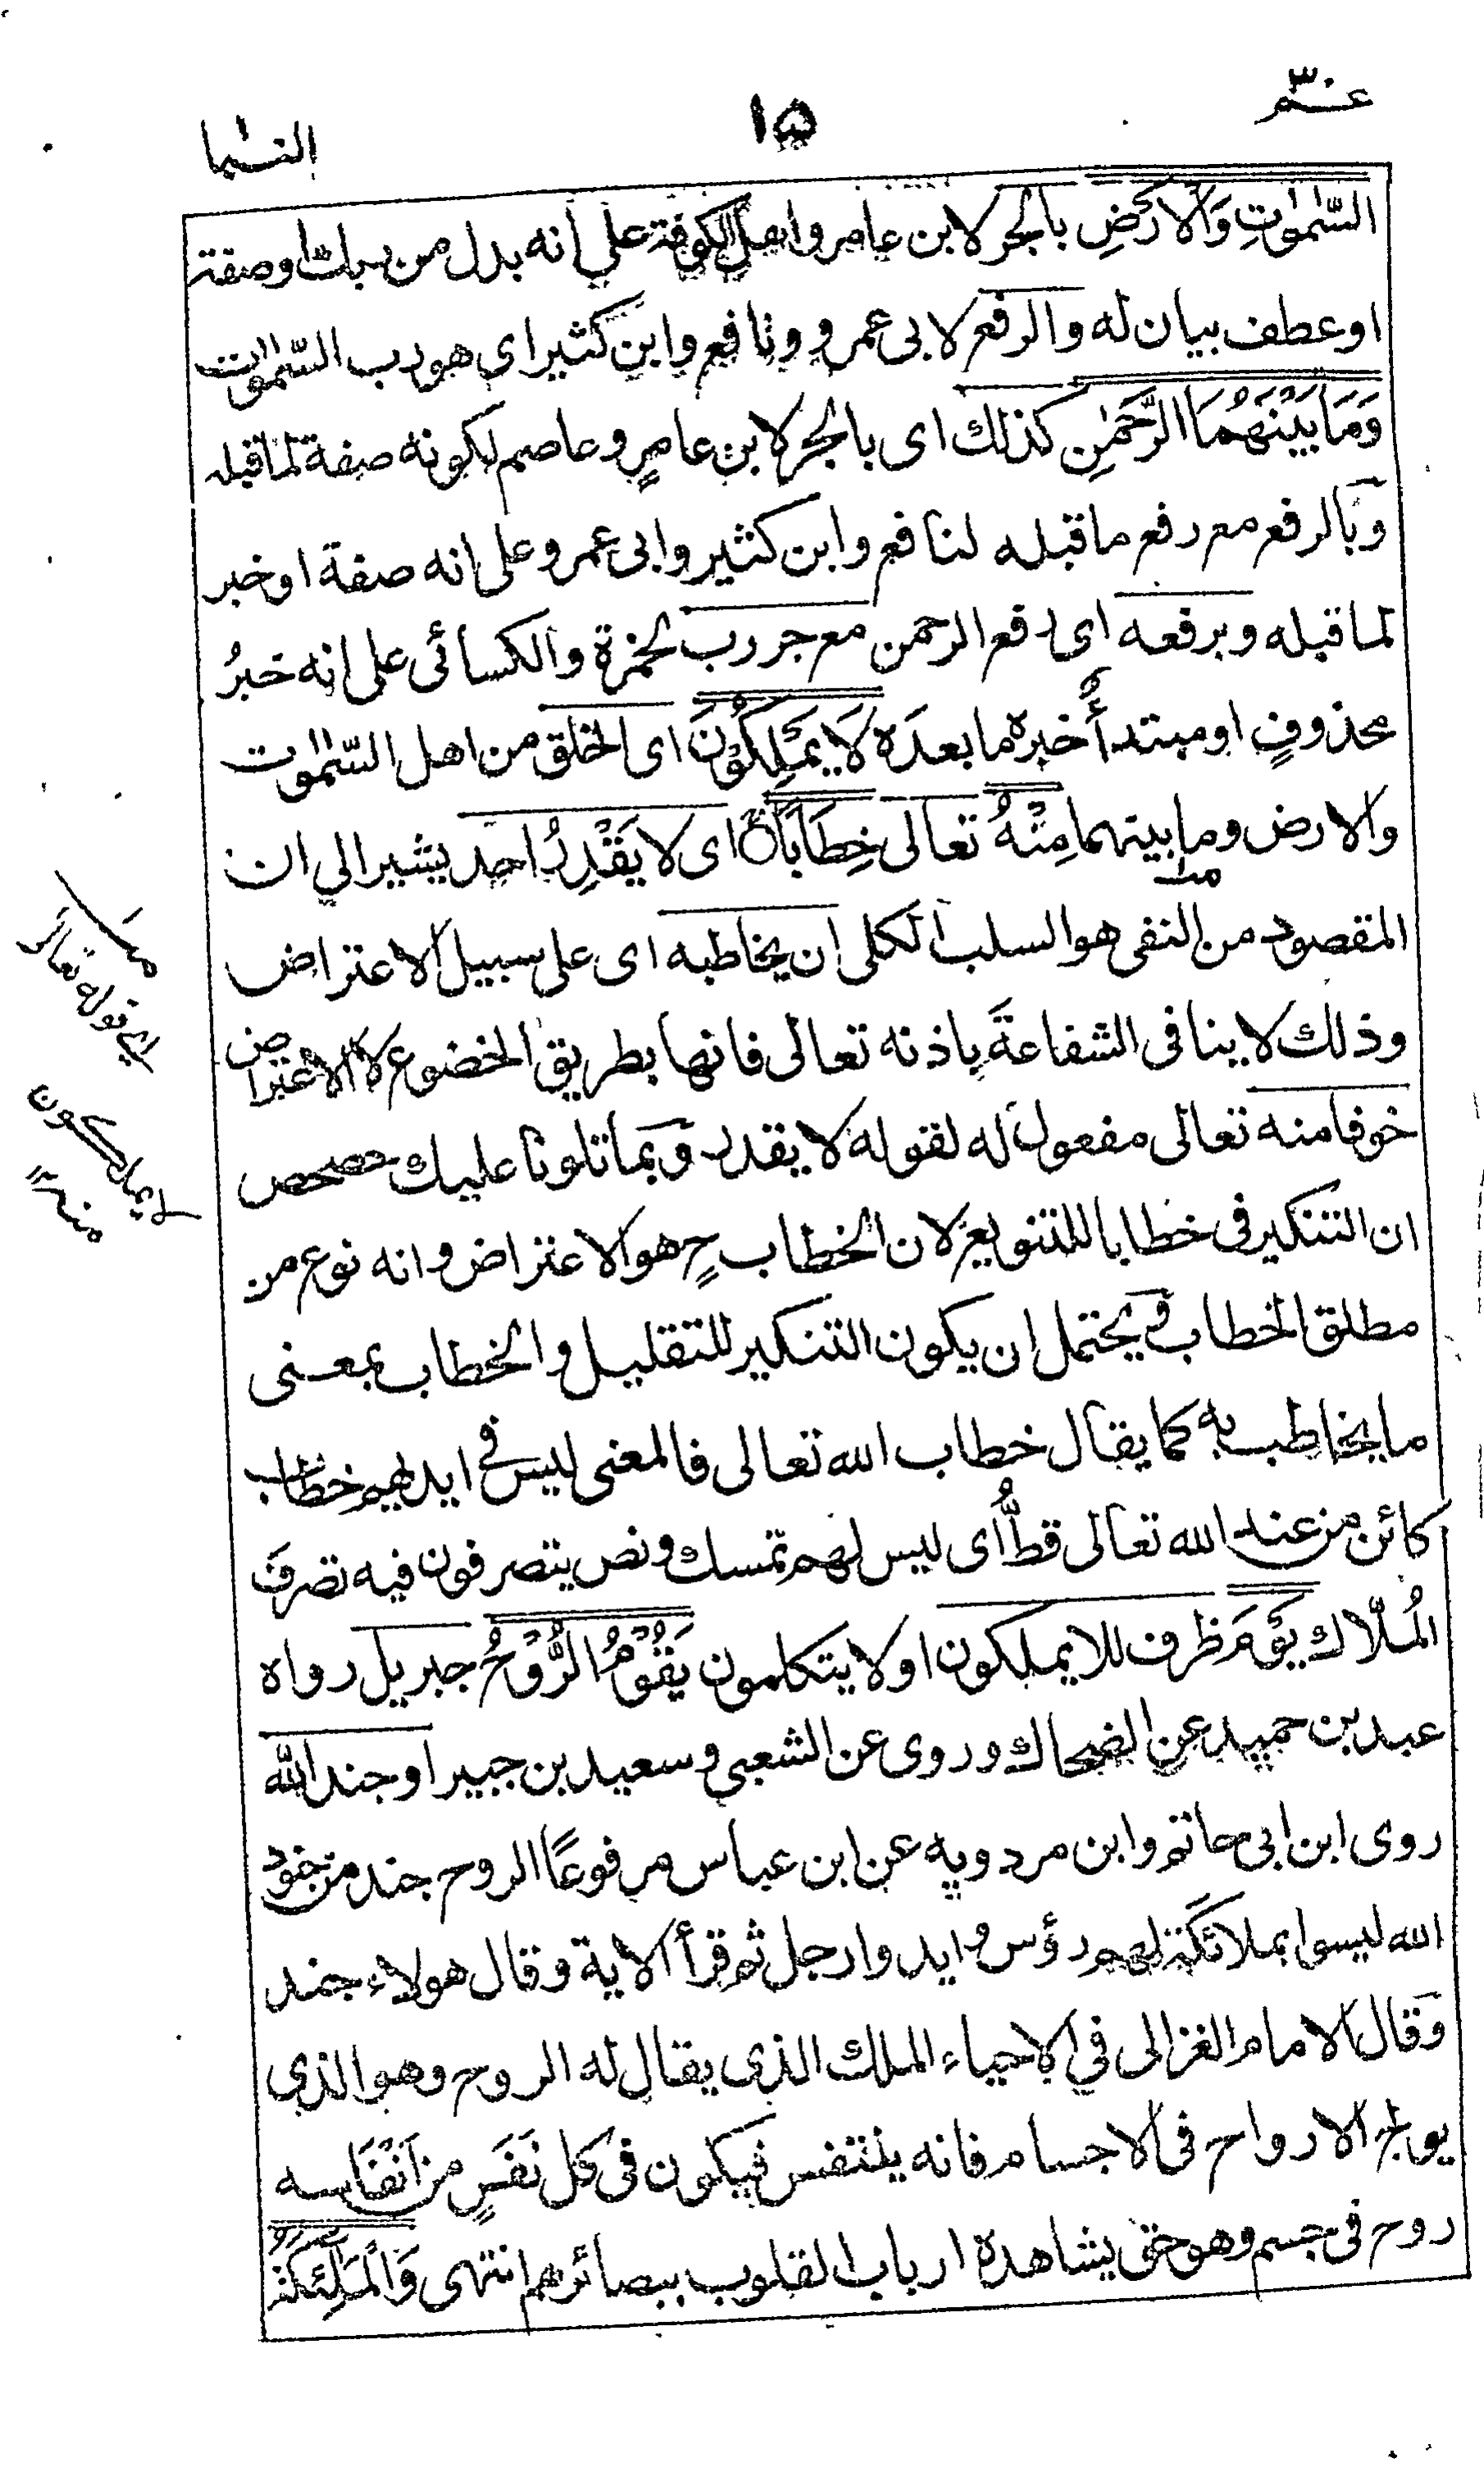 عـم ٣٠
١٥
النبا
السّمٰوٰتِ وَالْاَرْضِ بالجر لابن عامر واهل الكوفة على انه بدل من ربك او صفة
او عطف بيان له والرفع لابى عمرو ونافع وابن كثير اى هو رب السّمٰوٰت
وَمَا بَيْنَهُمَا الرَّحْمٰنِ كذلك اى بالجر لابن عامرٍ وعاصم لكونه صفة لما قبله
وبالرفع مع رفع ما قبله لنافع وابن كثير وابى عمرو على انه صفة او خبر
لما قبله وبرفعه اى رفع الرحمن مع جر رب لحمزة والكسائى على انه خبرُ
محذوفٍ او مبتدأ خبره ما بعدَه لَا يَمْلِكُوْنَ اى الخلق من اهل السّمٰوٰت
والارض وما بينهما مِنْهُ تعالى خِطَابًا اى لا يَقْدِرُ احد يشير الى ان
المقصود من النفى هو السلب الكلى ان يخاطبه اى على سبيل الاعتراض
وذلك لا ينافى الشفاعةَ باذنه تعالى فانها بطريق الخضوع لا الاعتراض
خوفا منه تعالى مفعول له لقوله لا يقدر وبما تلونا عليك حصحص
ان التنكير فى خطابا للتنويع لان الخطاب ح هو الاعتراض وانه نوع من
مطلق الخطاب ويحتمل ان يكون التنكير للتقليل والخطاب بمعنى
ما يخاطب به كما يقال خطاب الله تعالى فالمعنى ليس فى ايديهم خطاب
كائن من عند الله تعالى قطُّ اى ليس لهم تمسك ونص يتصرفون فيه تصرفَ
المُلّاك يَوْمَ ظرف للا يملكون او لا يتكلمون يَقُوْمُ الرُّوْحُ جبريل رواه
عبد بن حميد عن الضحاك وروى عن الشعبى وسعيد بن جبير او جند الله
روى ابن ابى حاتم وابن مردويه عن ابن عباس مرفوعًا الروح جند من جنود
الله ليسوا بملائكة لهم رؤس وايد وارجل ثم قرأ الاية وقال هولاء جند
وقال الامام الغزالى فى الاحياء الملك الذى يقال له الروح وهو الذى
يولج الارواح فى الاجسام فانه يتنفس فيكون فى كل نَفَسٍ من اَنْفَاسه
روح فى جسم وهو حق يشاهده ارباب القلوب ببصائرهم انتهى وَالْمَلٰٓئِكَةُ
اى قوله تعالى
لا يملكون
منه